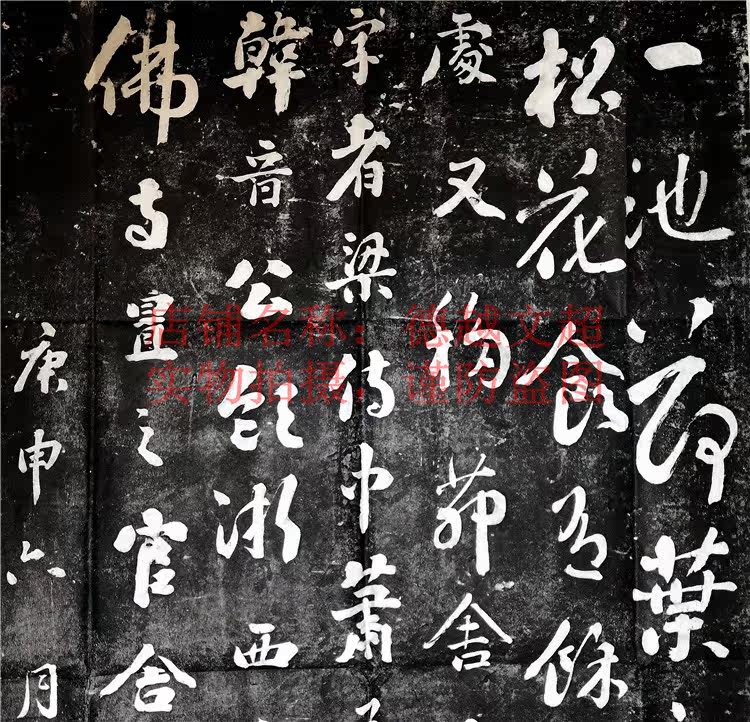 一池荷葉
松花食有餘
處又移茆舍
字者梁侍中蕭
韓晉公領浙西
佛寺置之官舍
庚申六月
店铺名称：德越文超
实物拍摄，谨防盗图